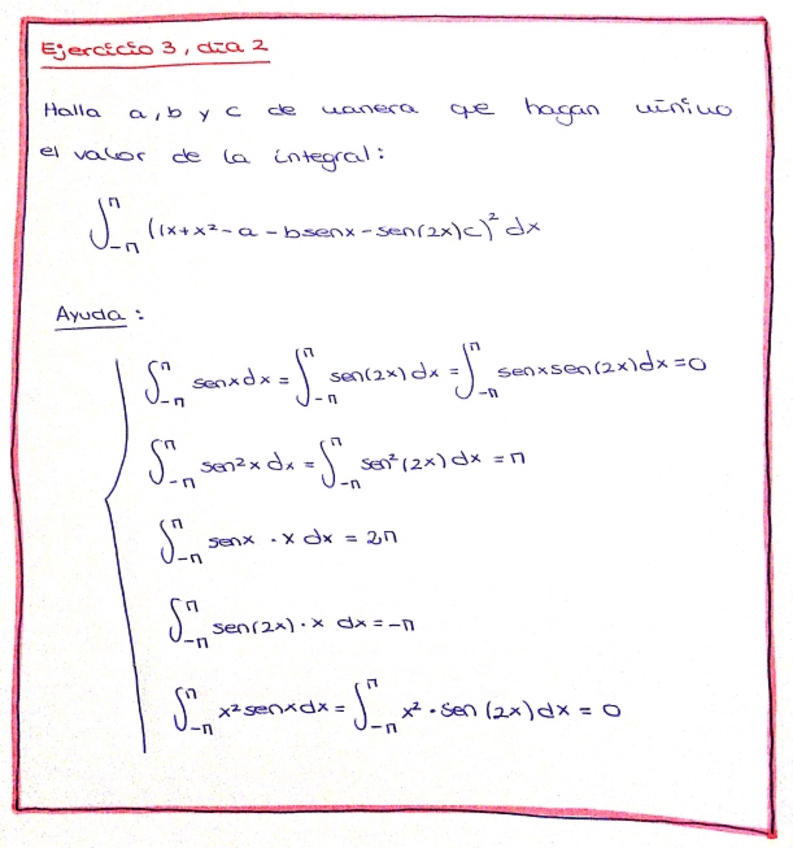 Ejercicio 3, día 2
Halla a, b y c de manera que hagan mínimo
el valor de la integral:
∫_{-π}^{π} ((x+x²-a-bsenx-sen(2x)c)² dx
Ayuda:
∫_{-π}^{π} senxdx = ∫_{-π}^{π} sen(2x)dx = ∫_{-π}^{π} senxsen(2x)dx = 0
∫_{-π}^{π} sen²x dx = ∫_{-π}^{π} sen²(2x)dx = π
∫_{-π}^{π} senx · x dx = 2π
∫_{-π}^{π} sen(2x) · x dx = -π
∫_{-π}^{π} x²senxdx = ∫_{-π}^{π} x² · sen(2x)dx = 0